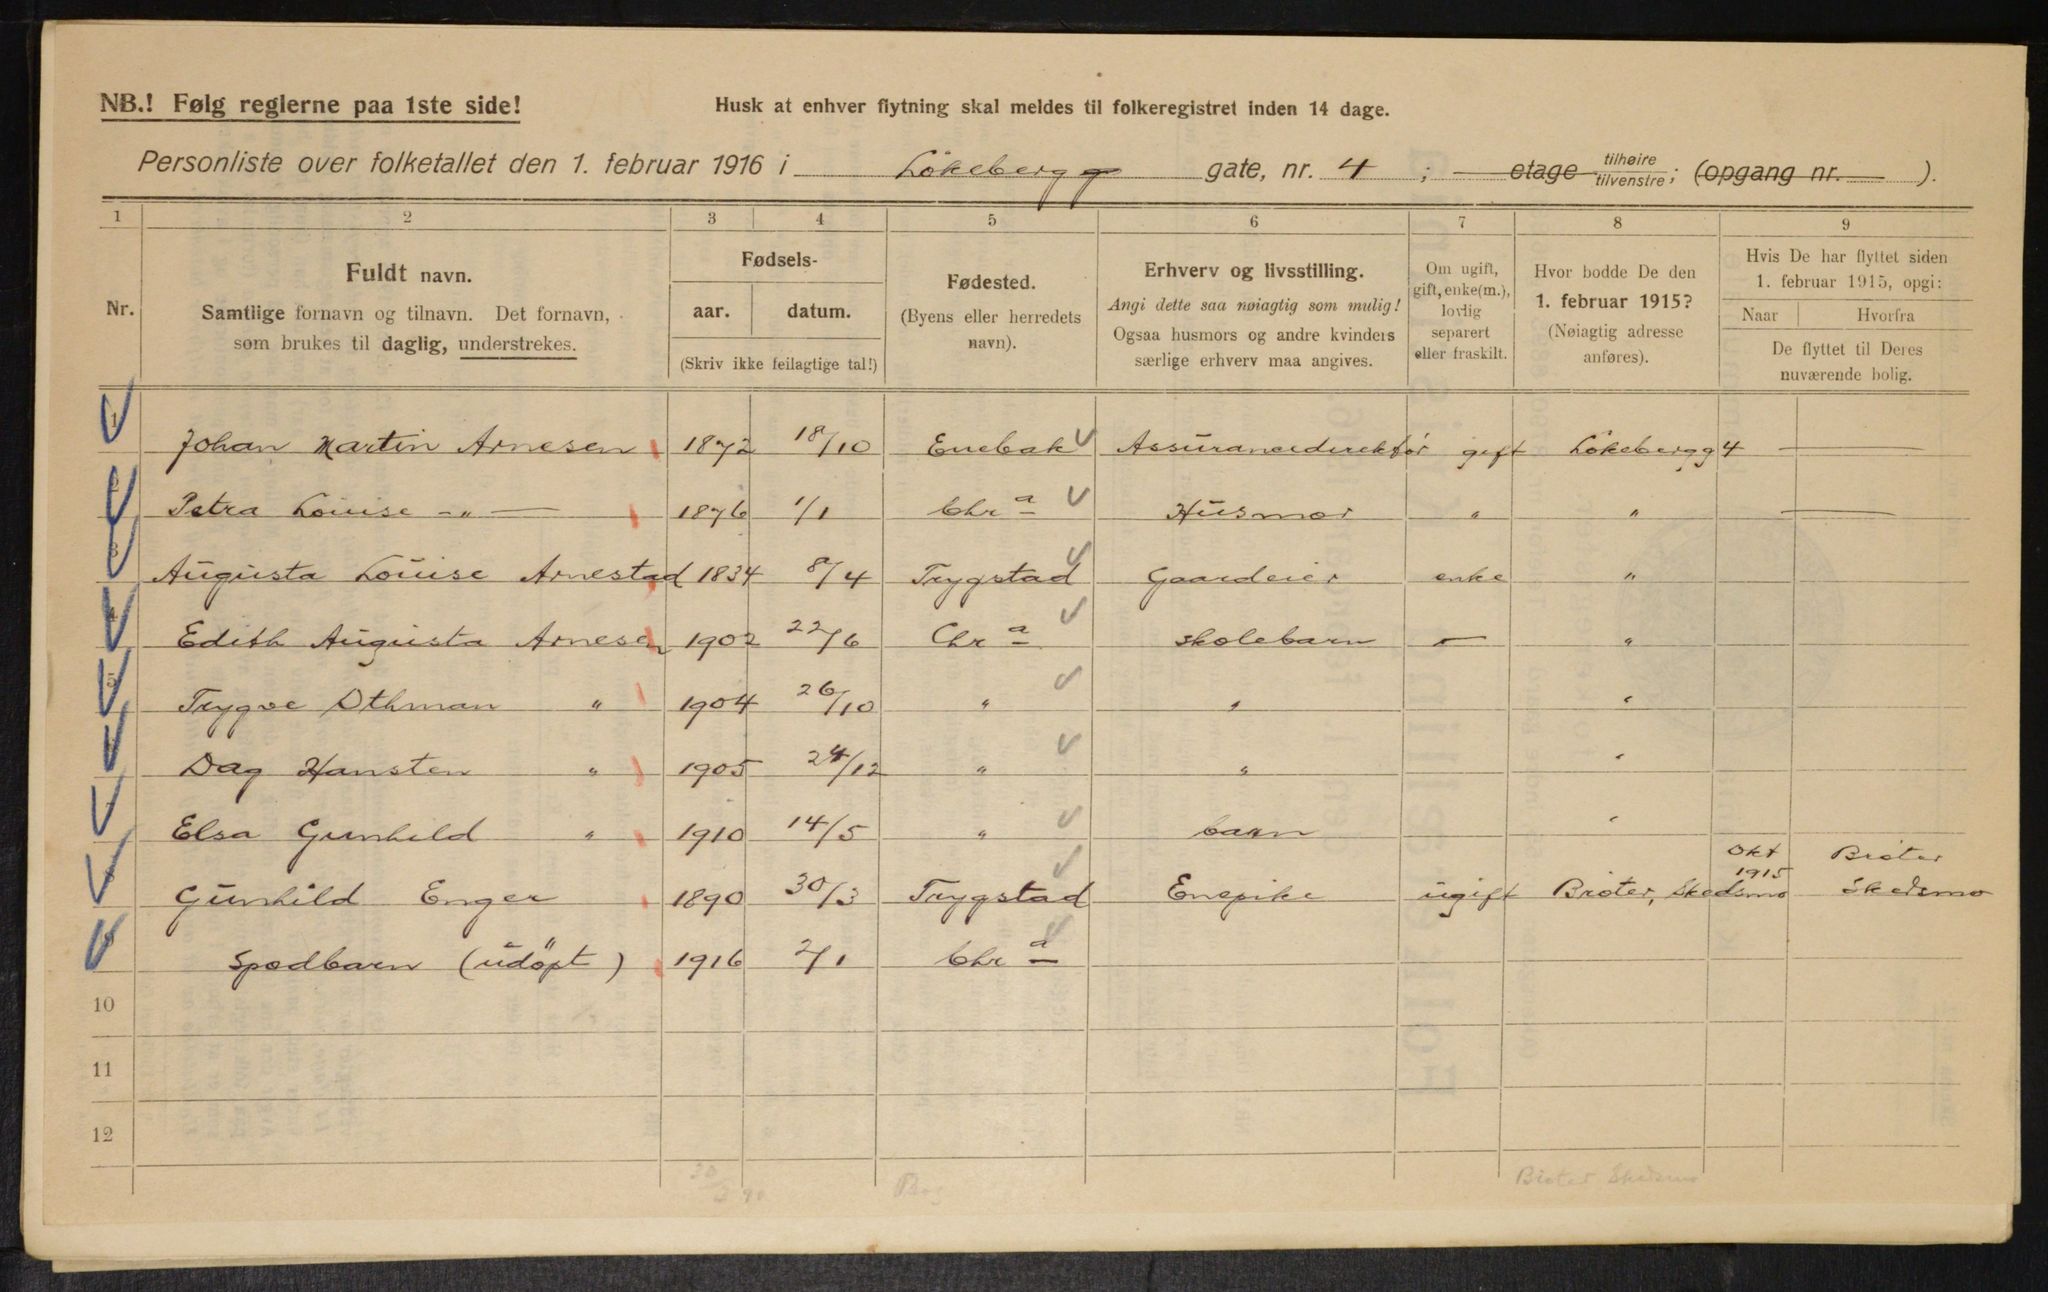 NB.! Følg reglerne paa 1ste side!
Husk at enhver flytning skal meldes til folkeregistret inden 14 dage.
Personliste over folketallet den 1. februar 1916 i Lökebergg gate, nr. 4 ; etage tilhøire tilvenstre; (opgang nr. ).
1 2 3 4 5 6 7 8 9
Nr.
Fuldt navn.
Samtlige fornavn og tilnavn. Det fornavn,
som brukes til daglig, understrekes.
Fødsels-
aar. datum.
(Skriv ikke feilagtige tal!)
Fødested.
(Byens eller herredets
navn).
Erhverv og livsstilling.
Angi dette saa nøiagtig som mulig!
Ogsaa husmors og andre kvinders
særlige erhverv maa angives.
Om ugift,
gift, enke(m.),
lovlig
separert
eller fraskilt.
Hvor bodde De den
1. februar 1915?
(Nøiagtig adresse
anføres).
Hvis De har flyttet siden
1. februar 1915, opgi:
Naar Hvorfra
De flyttet til Deres
nuværende bolig.
1 Johan Martin Arnesen 1872 18/10 Enebak Assurancedirektör gift Lökebergg 4 —
2 Petra Louise -"- — 1876 1/1 Chr a Husmor " " —
3 Augusta Louise Arnestad 1834 8/4 Trygstad Gaardeier enke "
4 Edith Augusta Arnesen 1902 22/6 Chr a skolebarn — "
5 Trygve Othman " 1904 26/10 " " "
Dag Hansten " 1905 24/12 " " "
Elsa Gunhild " 1910 14/5 " barn "
Okt 1915 Bröter
Gunhild Enger 1890 30/3 Trygstad Enepike ugift Bröter, Skedsmo Skedsmo
Spædbarn (udöpt) 1916 2/1 Chr a
10
11
12
30/3 90 Bröter Skedsmo